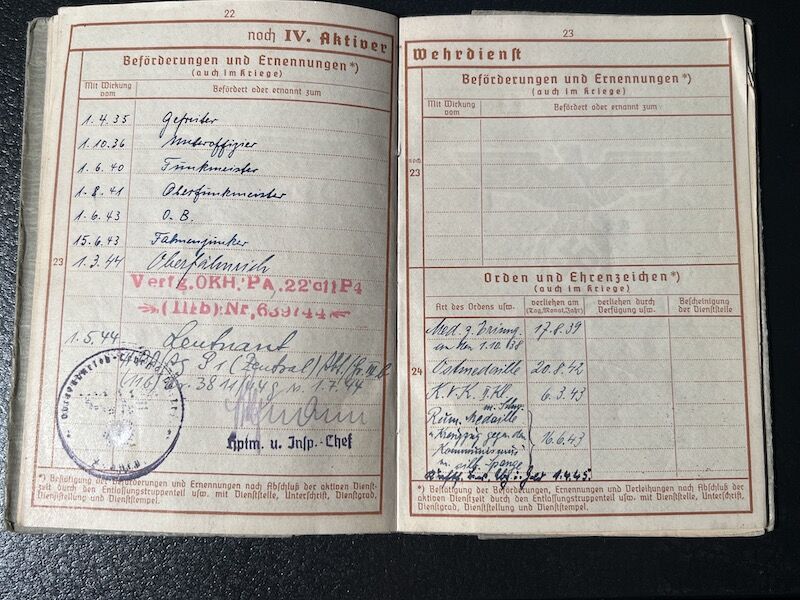 22
noch IV. Aktiver
Beförderungen und Ernennungen*)
(auch im Kriege)
Mit Wirkung vom
Befördert oder ernannt zum
1.4.35 Gefreiter
1.10.36 Unteroffizier
1.6.40 Funkmeister
1.8.41 Oberfunkmeister
1.6.43 O.B.
15.6.43 Fahnenjunker
23
1.3.44 Oberfähnrich
Verfg.OKH.PA.
1.5.44 Leutnant
(Zentral)
(116)
v. 1.7.44
Hptm. u. Insp.-Chef
*) Bestätigung der Beförderungen und Ernennungen nach Abschluß der aktiven Dienst-
zeit durch den Entlassungstruppenteil usw. mit Dienststelle, Unterschrift, Dienstgrad,
Dienststellung und Dienststempel.
23
Wehrdienst
Beförderungen und Ernennungen*)
(auch im Kriege)
Mit Wirkung vom
Befördert oder ernannt zum
noch
23
Orden und Ehrenzeichen*)
(auch im Kriege)
Art des Ordens usw.
verliehen am
(Tag, Monat, Jahr)
verliehen durch
Verfügung usw.
Bescheinigung
der Dienststelle
Med. z. Erinng. 17.8.39
an den 1.10.38
24
Ostmedaille 20.8.42
K.V.K. II. Kl. 6.3.43
m. Schw.
Rum. Medaille
Kreuzzug gegen den 16.6.43
Kommunismus
m. silb. Spange
1.4.45.
*) Bestätigung der Beförderungen, Ernennungen und Verleihungen nach Abschluß der
aktiven Dienstzeit durch den Entlassungstruppenteil usw. mit Dienststelle, Unterschrift,
Dienstgrad, Dienststellung und Dienststempel.